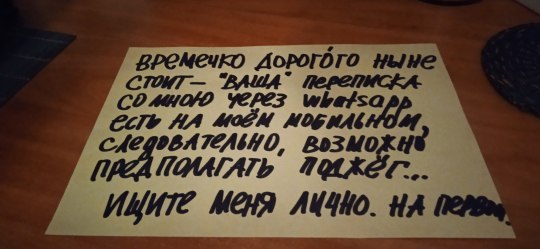 Времечко дорогóго ныне
стоит — "Ваша" переписка
со мною через whatsapp
есть на моём мобильном,
следовательно, возможно
предполагать поджёг...
Ищите меня лично. На